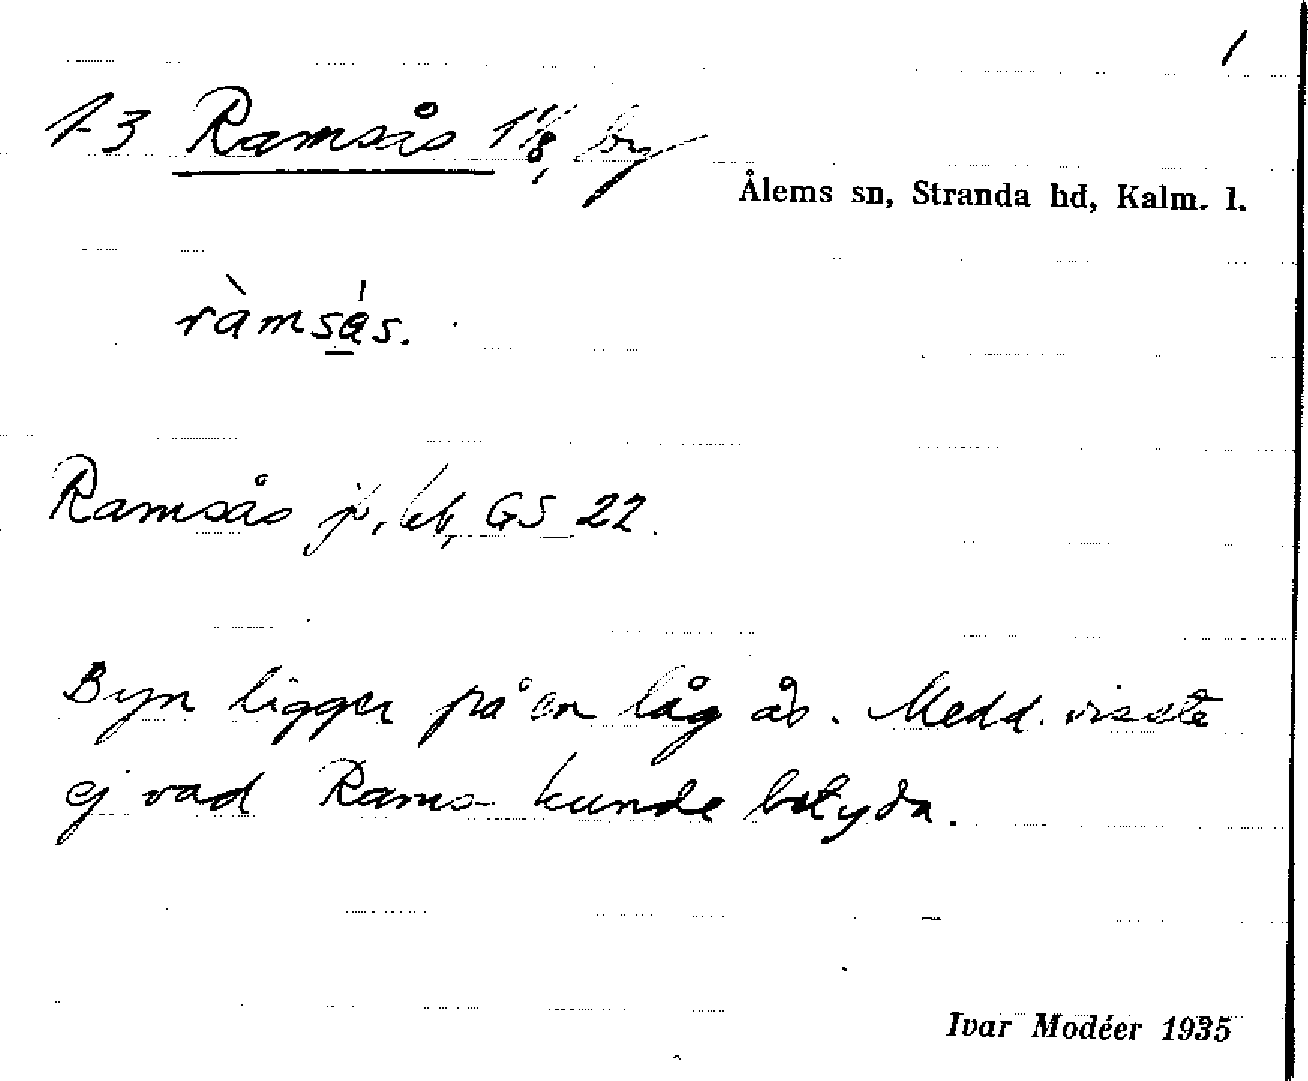 /
1-3 Ramsås 1 1/8, by
Ålems sn, Stranda hd, Kalm. l.
ràmsás.
Ramsås jb, kb, GS 22.
Byn ligger på en låg ås. Medd. visste
ej vad Rams- kunde betyda.
Ivar Modéer 1935